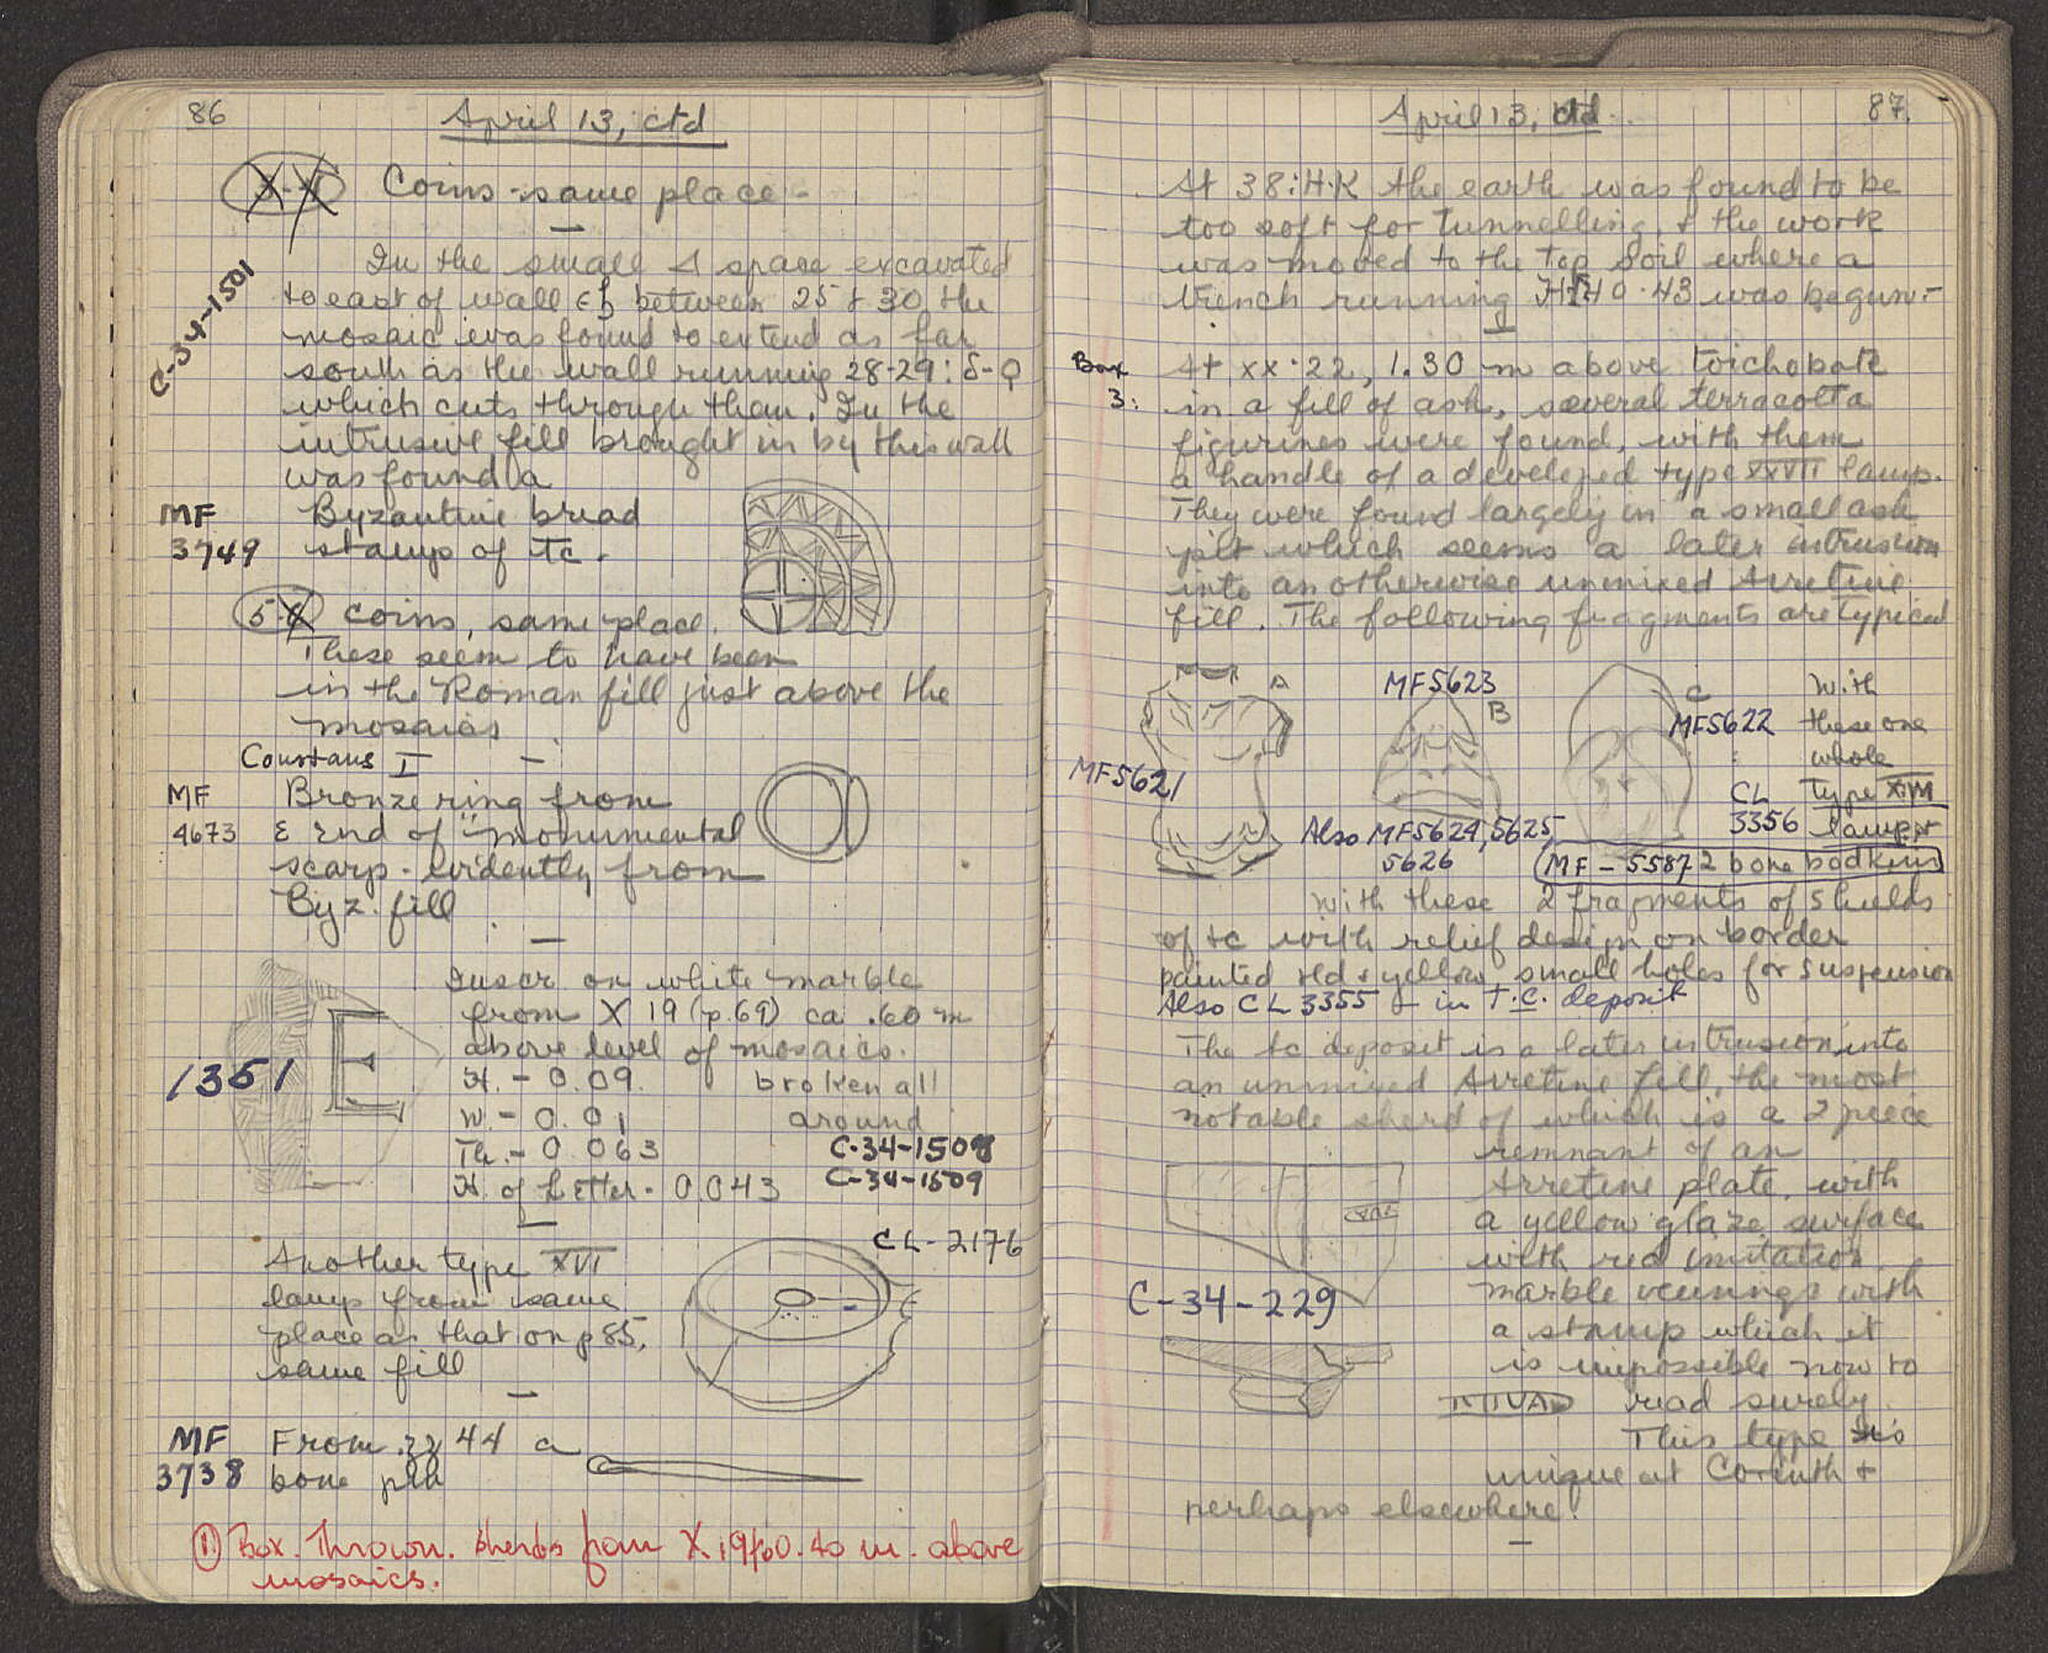 86
April 13, ctd
Coins - same place -
C-34-1501
In the small Δ space excavated
to east of wall between 25 + 30 the
mosaic was found to extend as far
south as the wall running 28-29: S-Q
which cuts through them. In the
intrusive fill brought in by this wall
was found a
MF
3749
Byzantine bread
stamp of Tc.
5-6 Coins, same place.
These seem to have been
in the Roman fill just above the
mosaics
Constans I
MF
4673
Bronze ring from
E end of "monumental
scarp - evidently from
Byz. fill
Inscr on white marble
from X 19 (p. 69) ca .60 m
above level of mosaics.
H. - 0.09. broken all
W. - 0.01 around
Th. - 0.063
H. of Letter - 0.043
C-34-1508
C-34-1509
1351
E
Another type XVI
lamp from same
place as that on p 85,
same fill
CL-2176
MF
3738
From 44 a
bone pin
① Box. Thrown. Sherds from X 19/60.40 m. above
mosaics.
87.
April 13, ctd.
At 38:H-K the earth was found to be
too soft for tunnelling, + the work
was moved to the top soil where a
trench running 40-43 was begun. -
Box
3:
At xx-22, 1.30 m above toichobate
in a fill of ash, several terracotta
figurines were found, with them
a handle of a developed type XXVII lamp.
They were found largely in a small ash
pit which seems a later intrusion
into an otherwise unmixed Arretine
fill. The following fragments are typical
A
MF5621
MF5623
B
C
MF5622
With
these one
whole
type
lamp
CL
3356
Also MF5624, 5625,
5626
MF-5587 2 bone bodkins
With these 2 fragments of shields
of tc with relief design on border
painted red + yellow small holes for suspension
Also CL 3355 - in T.C. deposit
The tc deposit is a later intrusion into
an unmixed Arretine fill, the most
notable sherd of which is a 2 piece
remnant of an
Arretine plate, with
a yellow glaze surface
with red imitation
marble veinings with
a stamp which it
is impossible now to
read surely.
This type is
unique at Corinth +
perhaps elsewhere.
C-34-229